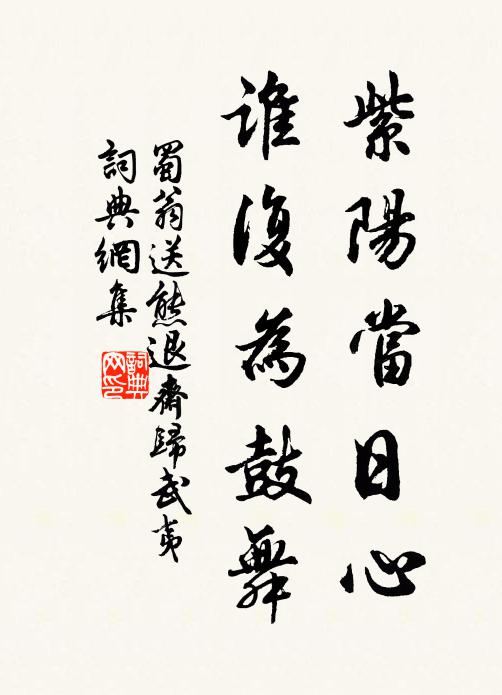 紫陽當日心
誰復為鼓舞
蜀翁送熊退齋歸武夷
詞典網集
詞典網印